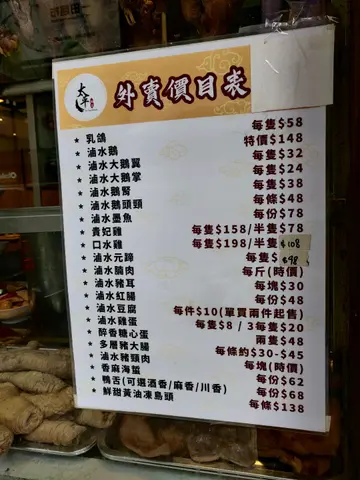 太平
外賣價目表
★ 乳鴿 每隻$58
★ 滷水鵝 特價$148
★ 滷水大鵝翼 每隻$32
★ 滷水大鵝掌 每隻$24
★ 滷水鵝腎 每隻$38
★ 滷水鵝頭頸 每條$48
★ 滷水墨魚 每份$78
★ 貴妃雞 每隻$158/半隻$78
★ 口水雞 每隻$198/半隻$108
★ 滷水元蹄 每隻$98
★ 滷水腩肉 每斤(時價)
★ 滷水豬耳 每塊$30
★ 滷水紅腸 每份$48
★ 滷水豆腐 每件$10(單買兩件起售)
★ 滷水雞蛋 每隻$8 / 3每隻$20
★ 醉香糖心蛋 兩隻$48
★ 多層豬大腸 每條約$30-$45
★ 滷水豬頸肉 每塊(時價)
★ 香麻海蜇 每份$62
★ 鴨舌(可選酒香/麻香/川香) 每份$68
★ 鮮甜黃油凍烏頭 每條$138